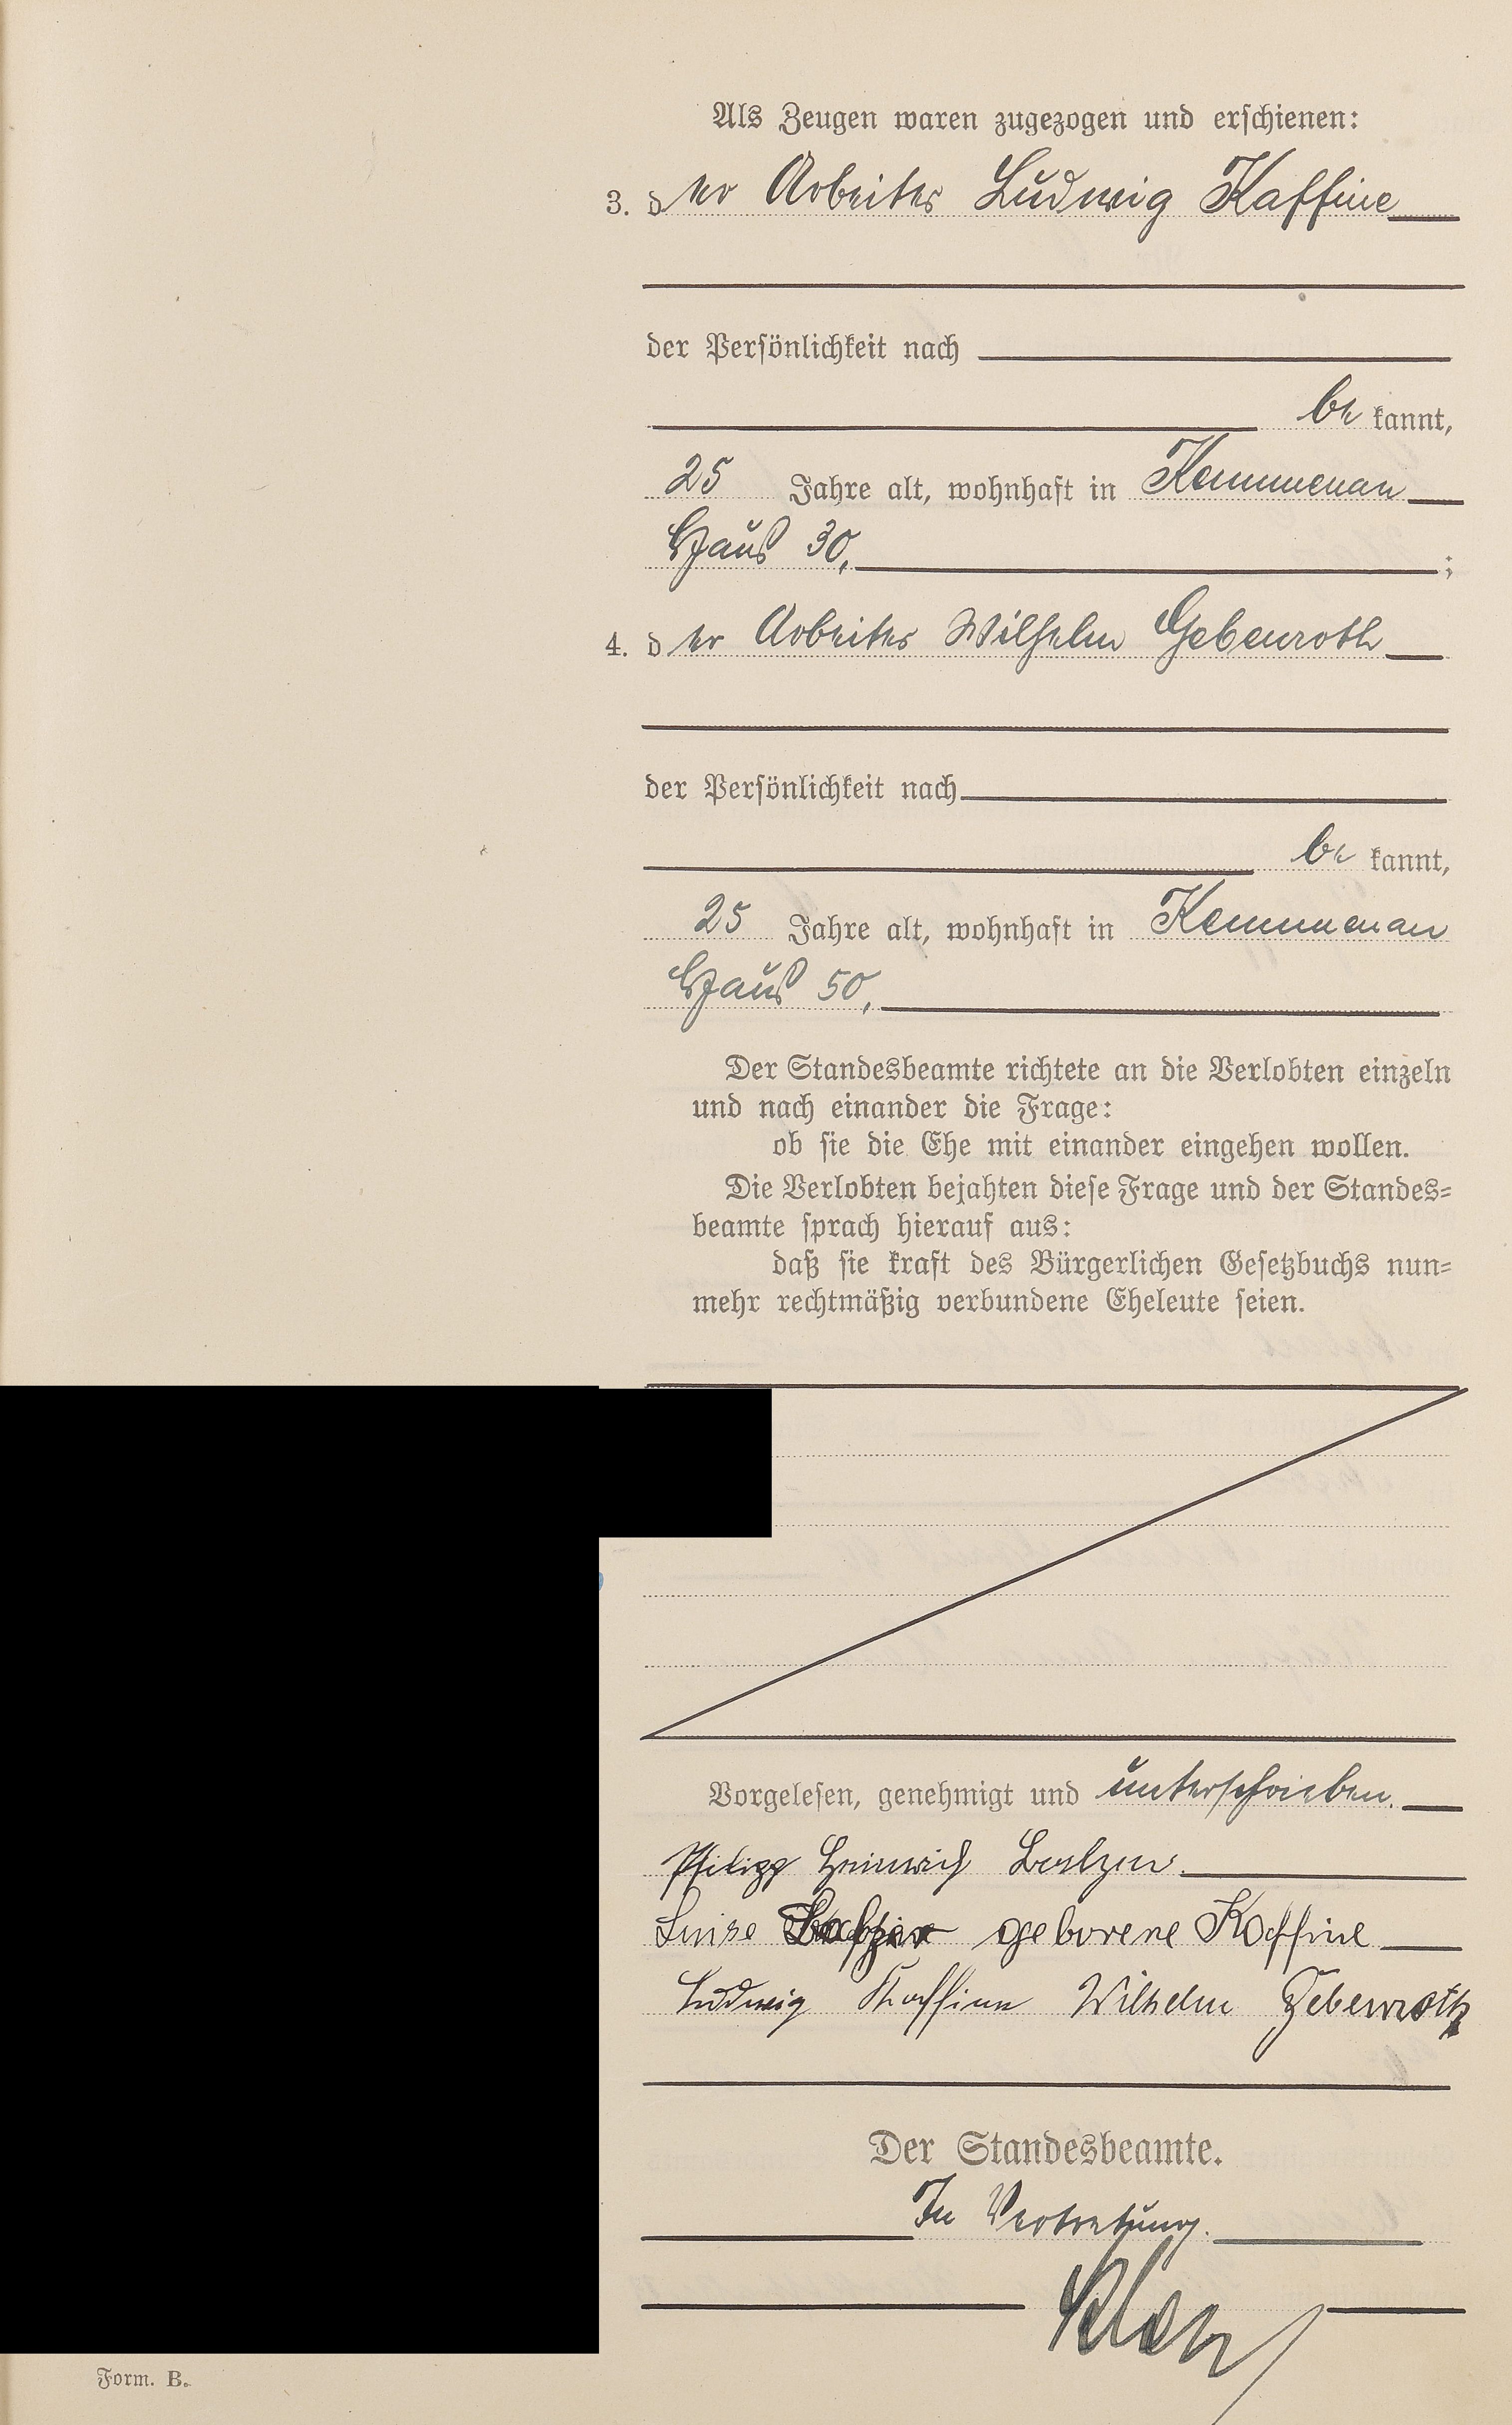 Als Zeugen waren zugezogen und erschienen:
3. der Arbeiter Ludwig Kaffine
der Persönlichkeit nach
be kannt,
25 Jahre alt, wohnhaft in Kemmenau
Haus 30, ;
4. der Arbeiter Wilhelm Gebenroth
der Persönlichkeit nach
be kannt,
25 Jahre alt, wohnhaft in Kemmenau
Haus 50,
Der Standesbeamte richtete an die Verlobten einzeln
und nach einander die Frage:
ob sie die Ehe mit einander eingehen wollen.
Die Verlobten bejahten diese Frage und der Standes-
beamte sprach hierauf aus:
daß sie kraft des Bürgerlichen Gesetzbuchs nun-
mehr rechtmäßig verbundene Eheleute seien.
Vorgelesen, genehmigt und unterschrieben.
Philipp Heinrich
Luise geborene Kaffine
Ludwig Kaffine Wilhelm Gebenroth
Der Standesbeamte.
In Vertretung.
Form. B.